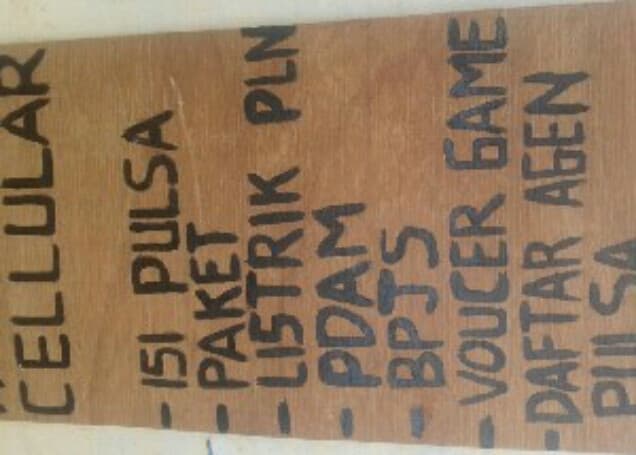 CELLULAR
- ISI PULSA
- PAKET
- LISTRIK PLN
- PDAM
- BPJS
- VOUCER GAME
- DAFTAR AGEN
PULSA